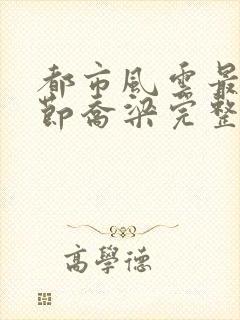 都市風雲最
節喬梁完整
高學德